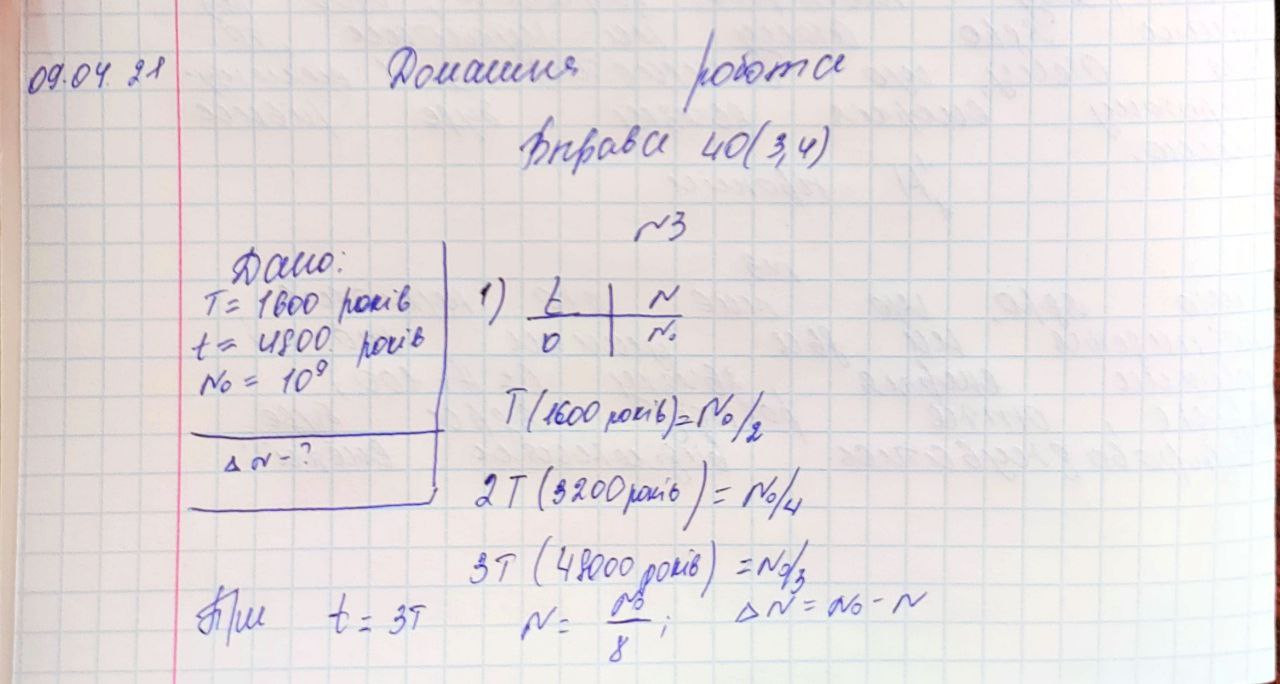 09.04.21 Домашня робота
Вправа 40(3,4)
№3
Дано:
T = 1600 років
t = 4800 років
N₀ = 10⁹
ΔN - ?
1) t | N
0 | N₀
T (1600 років) = N₀/2
2T (3200 років) = N₀/4
3T (48000 років) = N₀/3
При t = 3T N = N₀/8 ; ΔN = N₀ - N